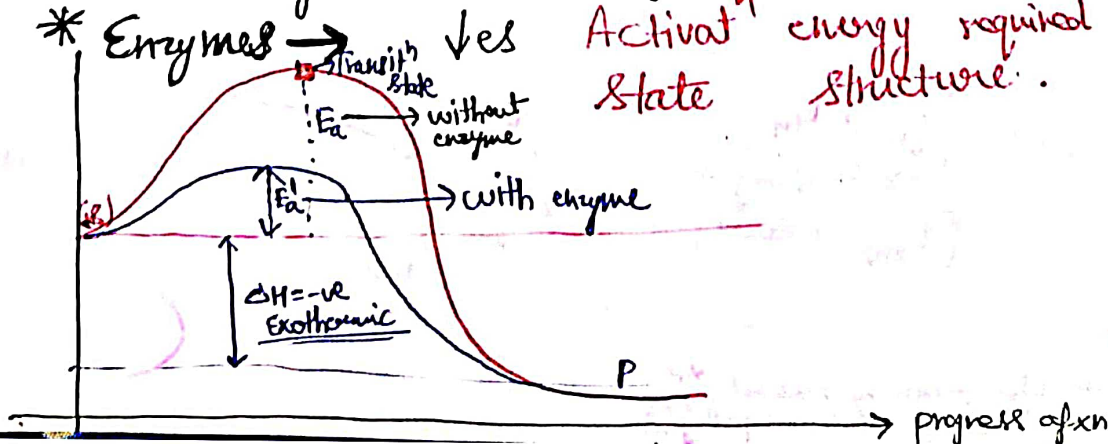 * Enzymes → ↓es Activatⁿ energy required
state structure.
Transitⁿ
state
Ea → without
enzyme
Ea' → with enzyme
ΔH = -ve
Exothermic
P
→ progress of xn